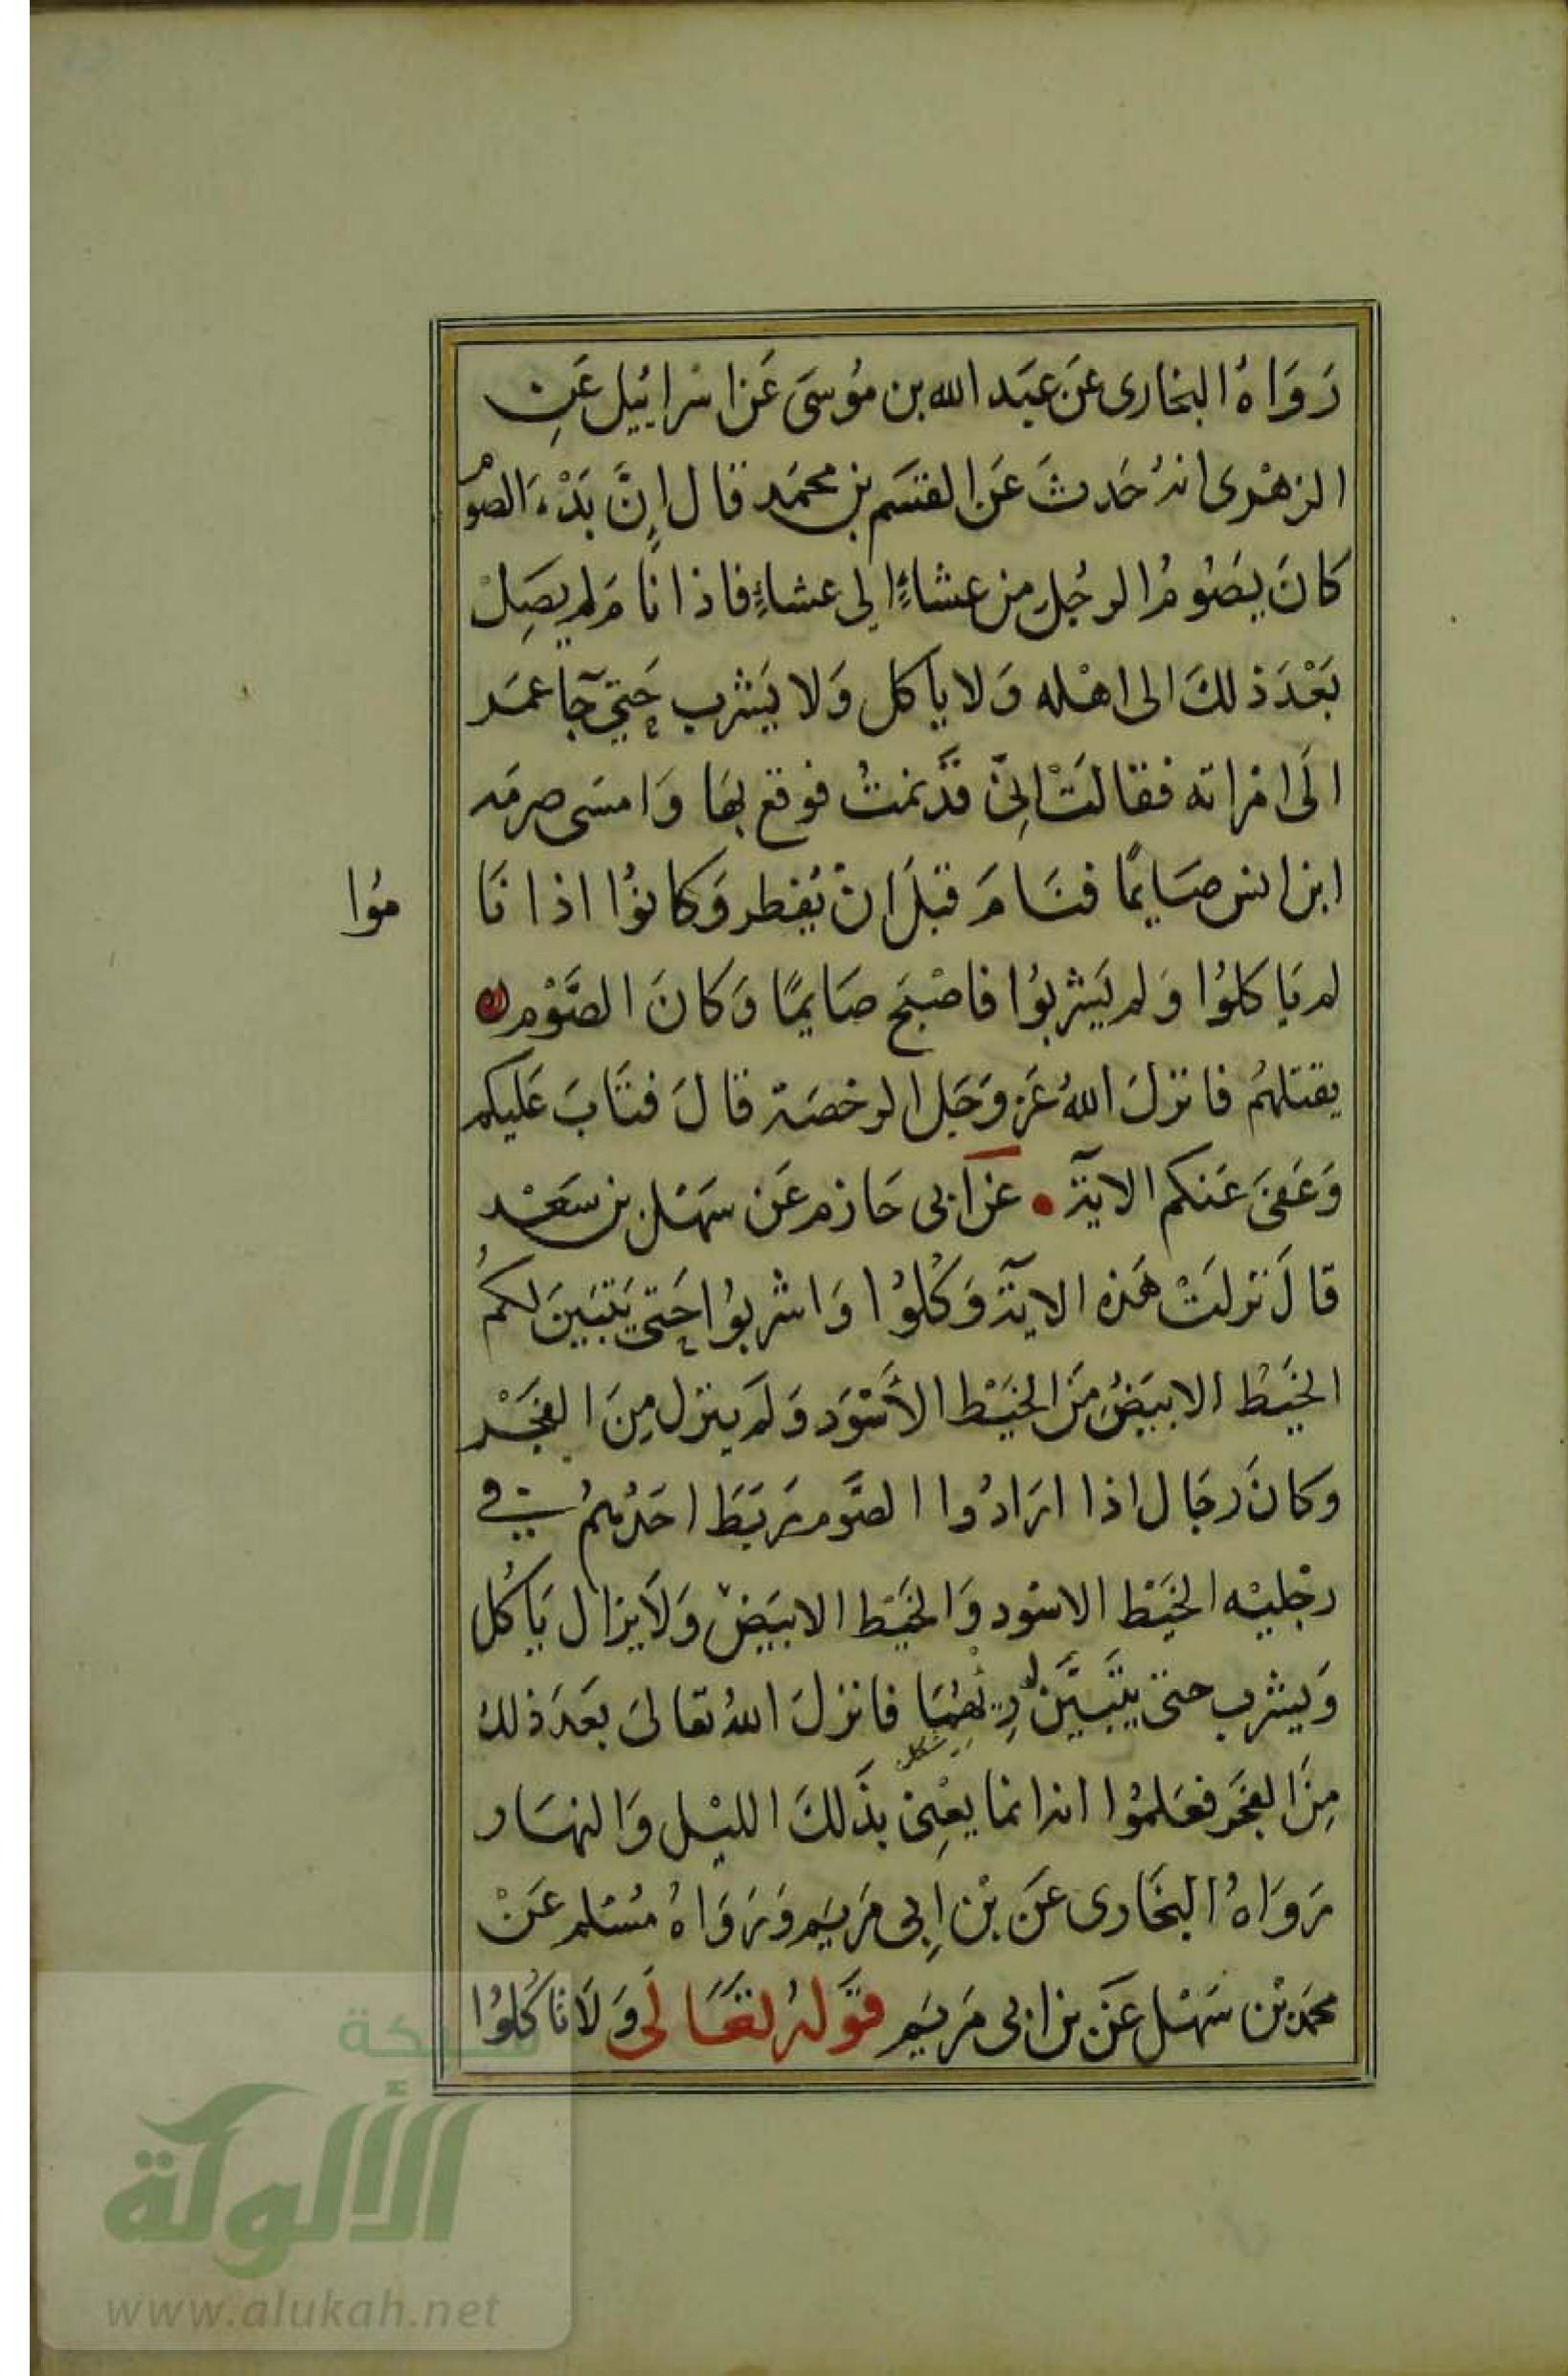 رَوَاهُ البخارى عَن عبَيد الله بن مُوسَى عَن اسْرايُيل عَنِ
الزهْرى انهُ حَدثَ عَن القسَم بن محمَد قال اِنَّ بَدْءَ الصَّوْمِ
كانَ يصَوُمُ الرجُل مِن عشاءٍ الى عشاءٍ فاذا نامَ لم يصِلْ
بَعْدَ ذلكَ الى اهْله وَلا يأكل وَلا يَشرب حَتى جآ عمَر
الَى امْراته فقالتْ اِنى قَدْ نمتُ فوقع بهَا وَامسَى صرمَه
ابن انس صَايمًا فنَامَ قبْلَ انْ يُفطر وَكانوُا اذا نَا
مُوا
لم يَاكلوُا وَلم يَشربوُا فاصْبَح صَايمًا وَكانَ الصَّوْم
يقتلهُم فانزلَ اللهُ عَز وَجَل الرخصَة قالَ فتَابَ عَليكم
وَعَفىَ عَنكم الآية • عَن ابى حَازم عَن سَهْل بن سَعْد
قالَ نزلَتْ هَذه الآية وَكُلوُا وَاشربوُا حَتى يَتبَينَ لكمُ
الخيَط الابيَضُ مِنَ الخيَط الأَسْوَد وَلم ينزل مِنَ الفجَر
وكانَ رجَال اذا ارَادُوا الصَّوم رَبَطَ احَدهُم في
رجْليْه الخيَط الاسْود وَالخيَط الابيَض وَلَا يزال يَاكُل
وَيشرب حتى يتَبيَّن له رِيهُمَا فانزلَ اللهُ تعَالىَ بعَدَ ذلك
مِنَ الفجَر فعَلموُا انه انما يعْنِى بذَلكَ الليْل وَالنهَار
رَوَاهُ البخَارى عَن بْن اِبى مَريَم وَرَوَاهُ مُسْلم عَنْ
محمَد بْن سَهْل عَن بن ابى مَريَم قوَلهُ تعَالَى وَلَا تاكُلوُا
شبكة
الألوكة
www.alukah.net